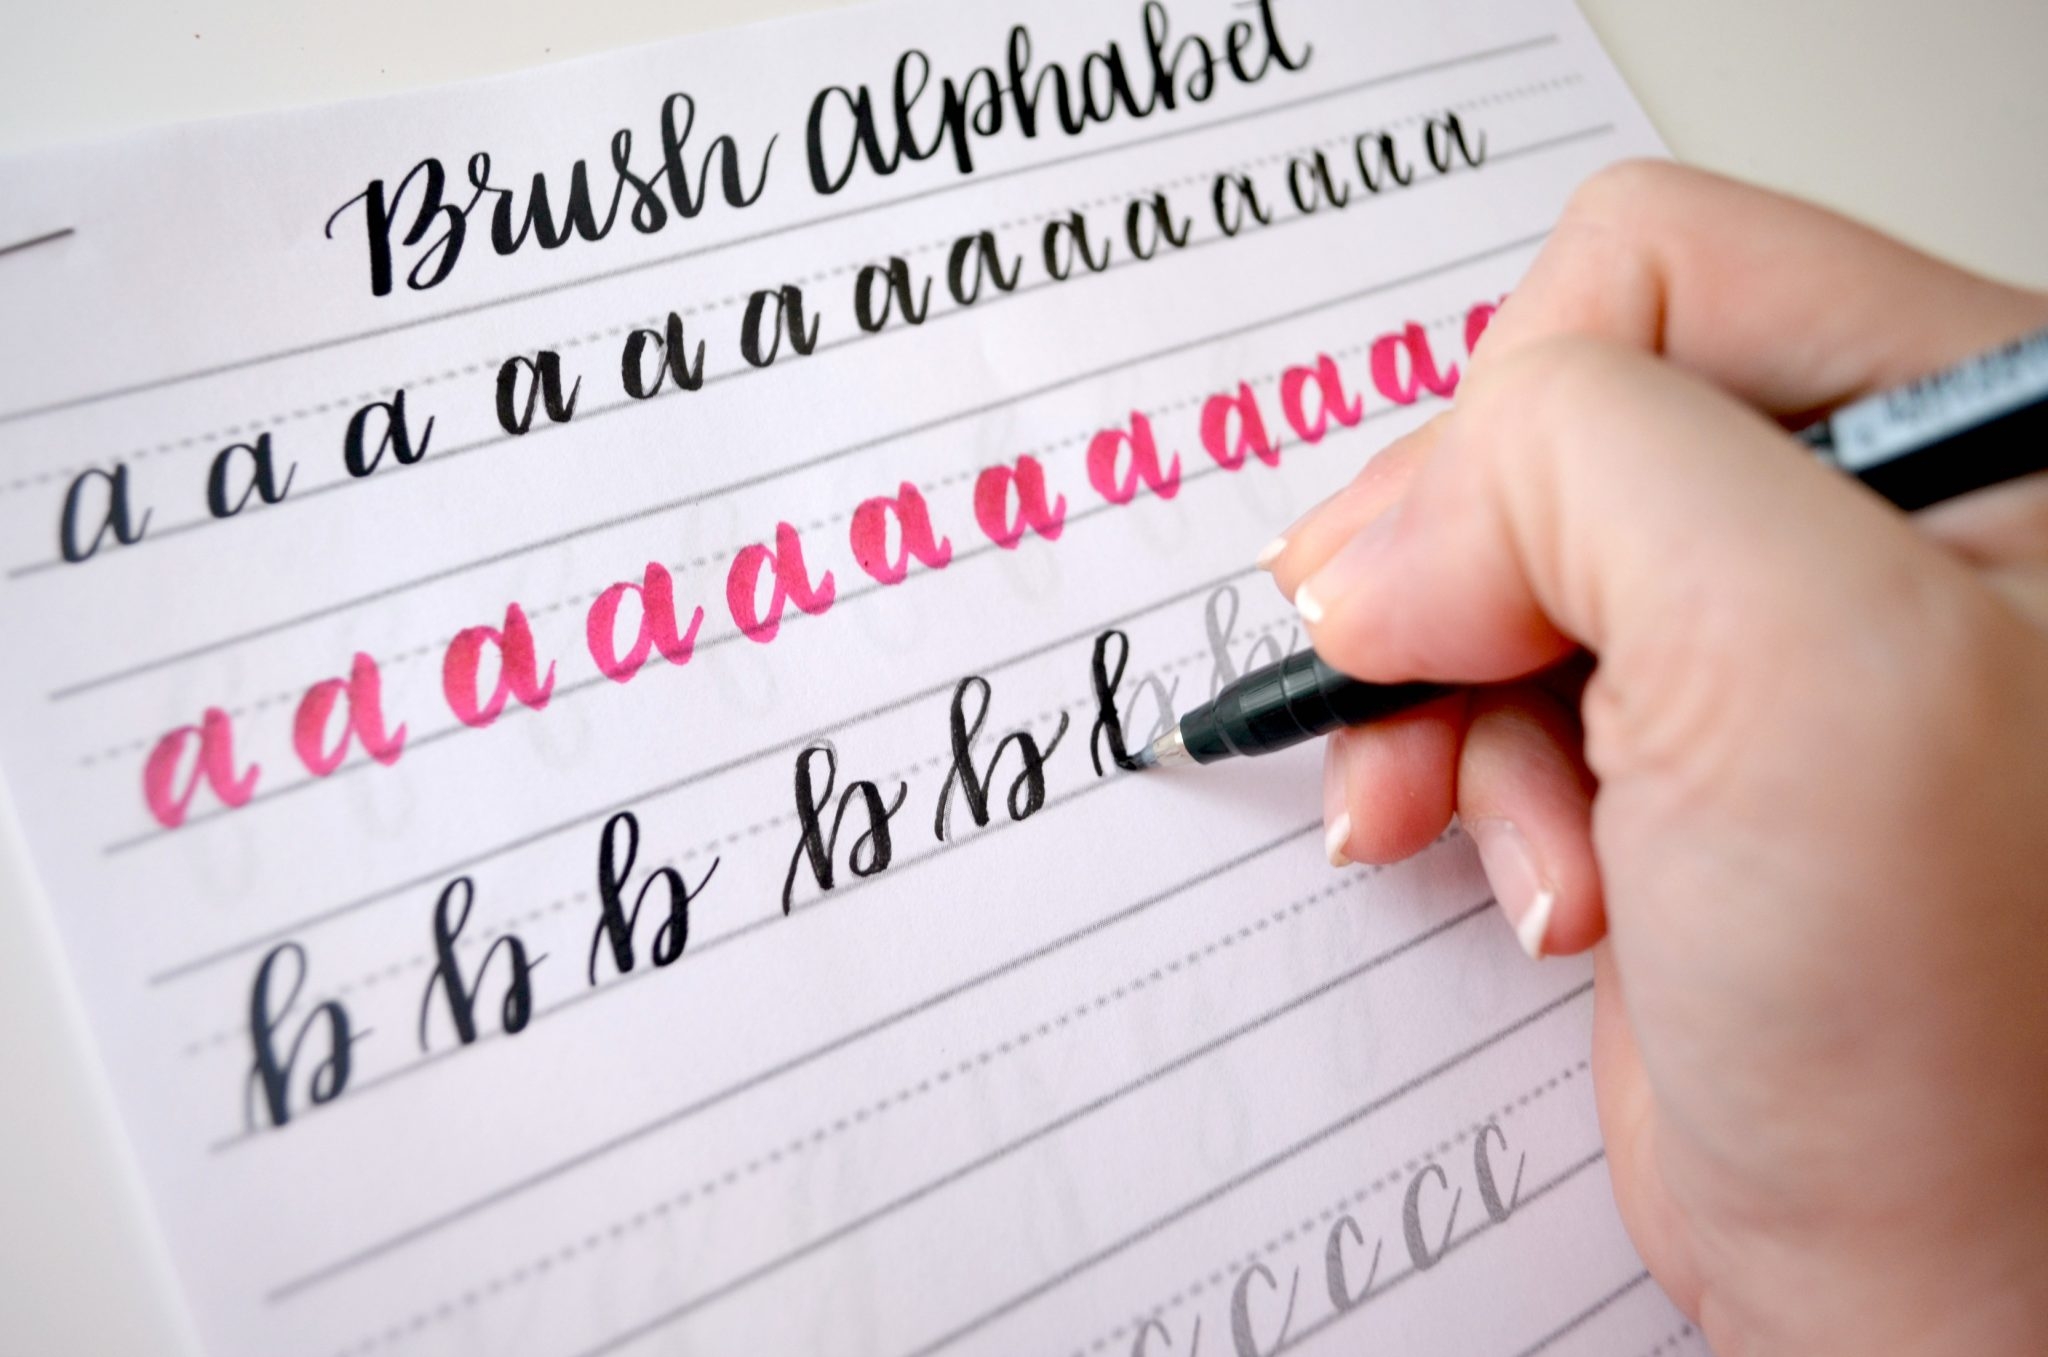 Brush Alphabet
a a a a a a a a a a a a a a
a a a a a a a a a a a a
b b b b b b b
c c c c c